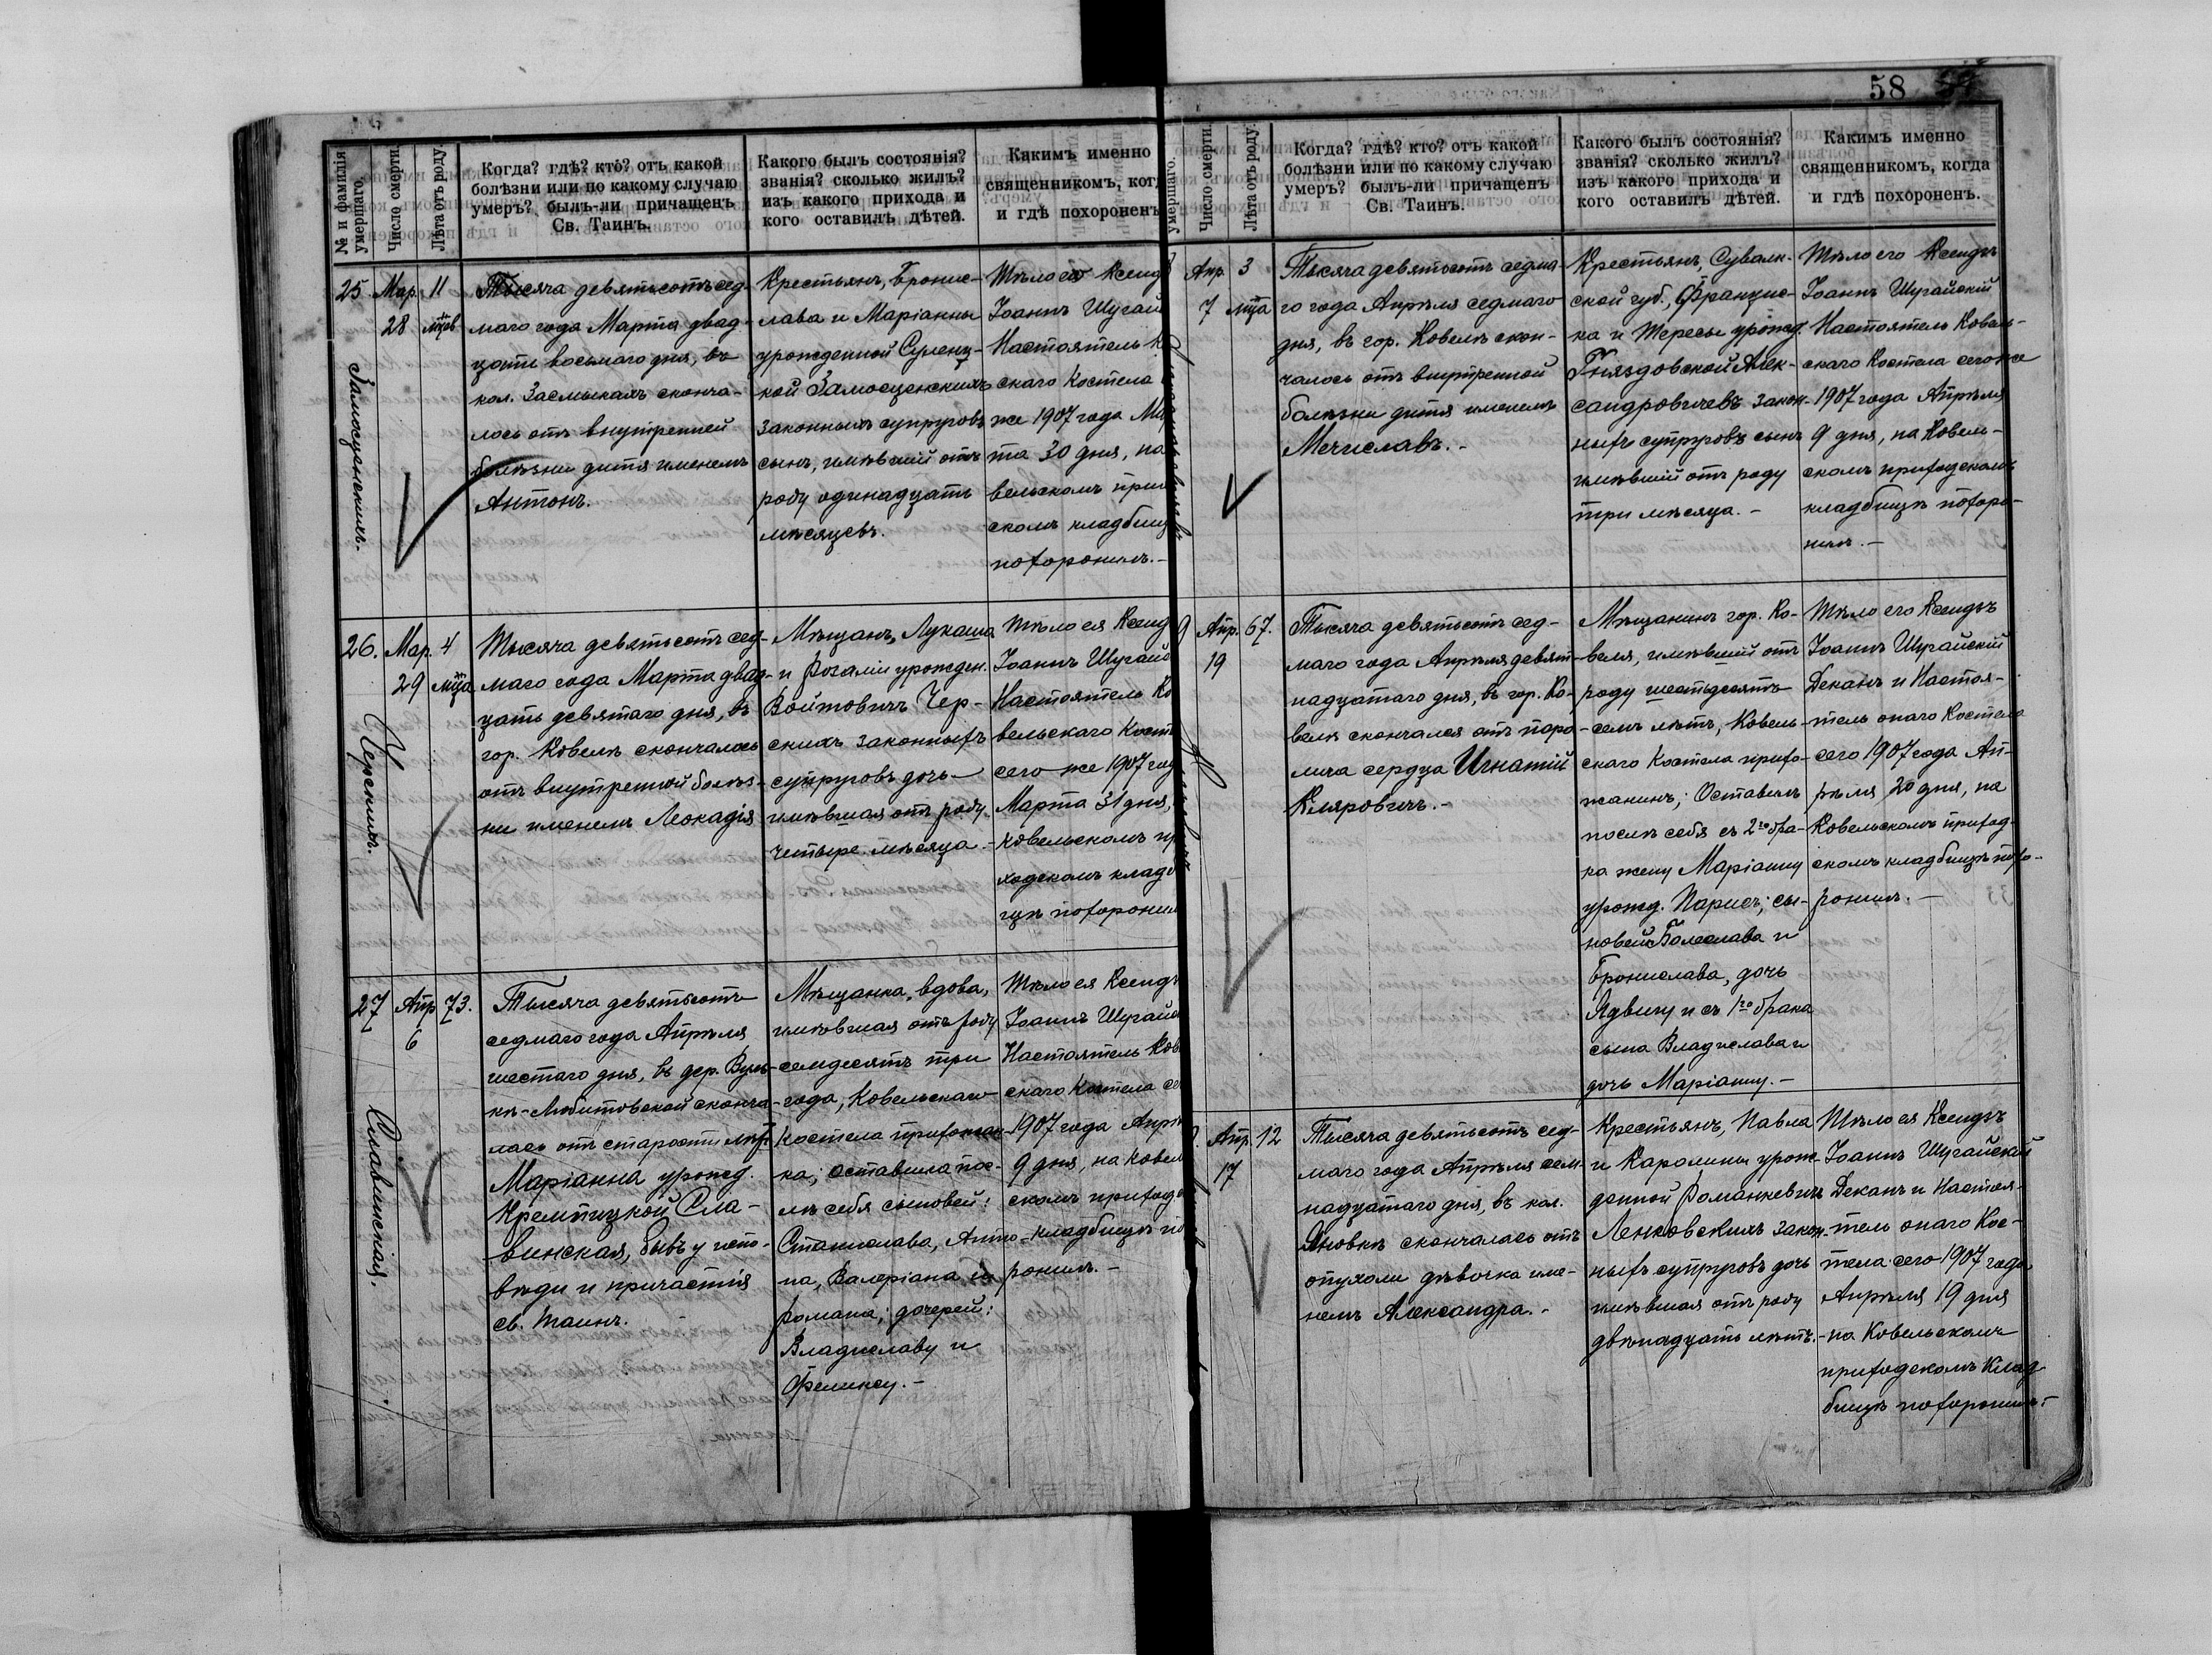 58
№ и фамилія умершаго.
Число смерти.
Лѣта отъ роду.
Когда? гдѣ? кто? отъ какой
болѣзни или по какому случаю
умеръ? былъ-ли причащенъ
Св. Таинъ.
Какого былъ состоянія?
званія? сколько жилъ?
изъ какого прихода и
кого оставилъ дѣтей.
Какимъ именно
священникомъ, ког
и гдѣ похороненъ
25
Замосценскихъ.
Мар.
28
11
мцев
Тысяча девятьсотъ сед-
маго года Марта двад-
цать восьмаго дня, въ
кол. Засмыкахъ сконча-
лось отъ внутренней
болѣзни дитя именемъ
Антонъ.
Крестьянъ, Бронис-
лава и Маріанны
урожденной
кой Замосценскихъ
законныхъ супруговъ
сынъ, имѣвшій отъ
роду одинадцать
мѣсяцевъ.
Тѣло его Ксенд
Іоаннъ Шугай
Настоятель К
скаго Костела
же 1907 года Ма
та 30 дня, на
вельскомъ при
скомъ кладбищ
похоронилъ.-
26.
Черскихъ.
Мар.
29
4
мца
Тысяча девятьсотъ сед-
маго года Марта двад-
цать девятаго дня, въ
гор. Ковелѣ скончалось
отъ внутренной болѣз-
ни именемъ Леокадія
Мѣщанъ, Лукаша
и Розаліи урожден.
Войтовичъ Чер-
скихъ законныхъ
супруговъ дочь
имѣвшая отъ роду
четыре мѣсяца.-
Тѣло ея Ксенд
Іоаннъ Шугай
Настоятель Ко
вельскаго Косте
сего же 1907 год
Марта 31 дня,
Ковельскомъ пр
ходскомъ кладб
щѣ похоронил
27
Славинская.
Апр
6
73.
Тысяча девятьсотъ
седмаго года Апрѣля
шестаго дня, въ дер. Вуль-
кѣ-Любитовской сконча-
лась отъ старости лѣтъ
Маріанна урожд.
Кремпицкой Сла-
винская, бывъ у испо-
вѣди и причастія
св. Таинъ.
Мѣщанка, вдова,
имѣвшая отъ роду
семдесятъ три
года, Ковельскаго
Костела прихожан-
ка; оставила пос-
лѣ себя сыновей:
Станислава, Анто-
на, Валеріана и
Романа; дочерей:
Владиславу и
Феликсу.-
Тѣло ея Ксендз
Іоаннъ Шугай
Настоятель Ков
скаго Костела се
1907 года Апрѣ
9 дня, на Ковел
скомъ приход
кладбищѣ по
ронилъ.-
умершаго.
Число смерти.
Лѣта отъ роду.
Когда? гдѣ? кто? отъ какой
болѣзни или по какому случаю
умеръ? былъ-ли причащенъ
Св. Таинъ.
Какого былъ состоянія?
званія? сколько жилъ?
изъ какого прихода и
кого оставилъ дѣтей.
Какимъ именно
священникомъ, когда
и гдѣ похороненъ.
Апр.
7
3
мца
Тысяча девятьсотъ седма-
го года Апрѣля седмаго
дня, въ гор. Ковелѣ скон-
чалось отъ внутренной
болѣзни дитя именемъ
Мечиславъ.-
Крестьянъ, Сувалк-
ской губ., Францис-
ка и Тересы урожд.
Гняздовской Алек-
сандровичевъ закон-
ныхъ супруговъ сынъ
имѣвшій отъ роду
три мѣсяца.-
Тѣло его Ксендзъ
Іоаннъ Шугайскій
Настоятель Ковель-
скаго Костела сего же
1907 года Апрѣля
9 дня, на Ковель-
скомъ приходскомъ
кладбищѣ похоро-
нилъ.-
Апр.
19
67.
Тысяча девятьсотъ сед-
маго года Апрѣля девят-
надцатаго дня, въ гор. Ко-
велѣ скончался отъ пара-
лича сердца Игнатій
Кляровичъ.-
Мѣщанинъ гор. Ко-
веля, имѣвшій отъ
роду шестьдесятъ
семь лѣтъ, Ковель-
скаго Костела прихо-
жанинъ; Оставилъ
послѣ себя съ 2го бра-
ка жену Маріанну
урожд. Парисъ; сы-
новей Болеслава и
Бронислава, дочь
Ядвигу и съ 1го брака
сына Владислава и
дочь Маріанну.-
Тѣло его Ксендзъ
Іоаннъ Шугайскій
Деканъ и Настоя-
тель онаго Костела
сего 1907 года Ап-
рѣля 20 дня, на
Ковельскомъ приход-
скомъ кладбищѣ похо-
ронилъ.-
Апр.
17
12
Тысяча девятьсотъ сед-
маго года Апрѣля сем-
надцатаго дня, въ кол.
Яновкѣ скончалась отъ
опухоли дѣвочка име-
немъ Александра.-
Крестьянъ, Павла
и Каролины урож-
денной Романкевичъ
Ленковскихъ закон-
ныхъ супруговъ дочь
имѣвшая отъ роду
двѣнадцать лѣтъ.-
Тѣло ея Ксендзъ
Іоаннъ Шугайскій
Деканъ и Настоя-
тель онаго Кос-
тела сего 1907 года
Апрѣля 19 дня
на Ковельскомъ
приходскомъ Клад-
бищѣ похоронилъ.-